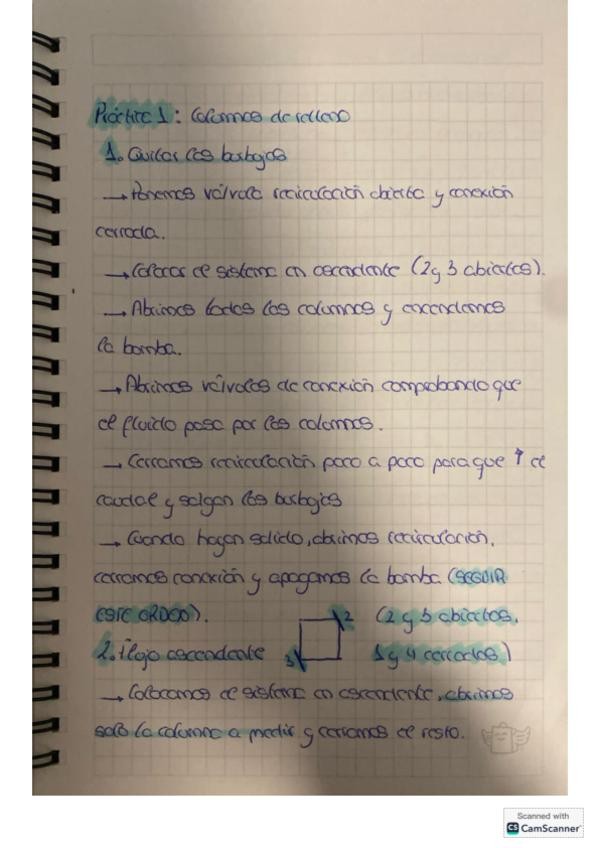 Práctica 1: Columnas de relleno
1. Quitar las burbujas
→ Ponemos válvula recirculación abierta y conexión
cerrada.
→ Colocar el sistema en ascendente (2 y 3 abiertas).
→ Abrimos todas las columnas y encendemos
la bomba.
→ Abrimos válvulas de conexión comprobando que
el fluido pasa por las columnas.
→ Cerramos recirculación poco a poco para que ↑ el
caudal y salgan las burbujas
→ Cuando hayan salido, abrimos recirculación,
cerramos conexión y apagamos la bomba (SEGUIR
ESTE ORDEN).
2 (2 y 3 abiertas,
2. Flujo ascendente 3 1 y 4 cerradas)
→ Colocamos el sistema en ascendente, abrimos
solo la columna a medir y cerramos el resto.
Scanned with
CS CamScanner